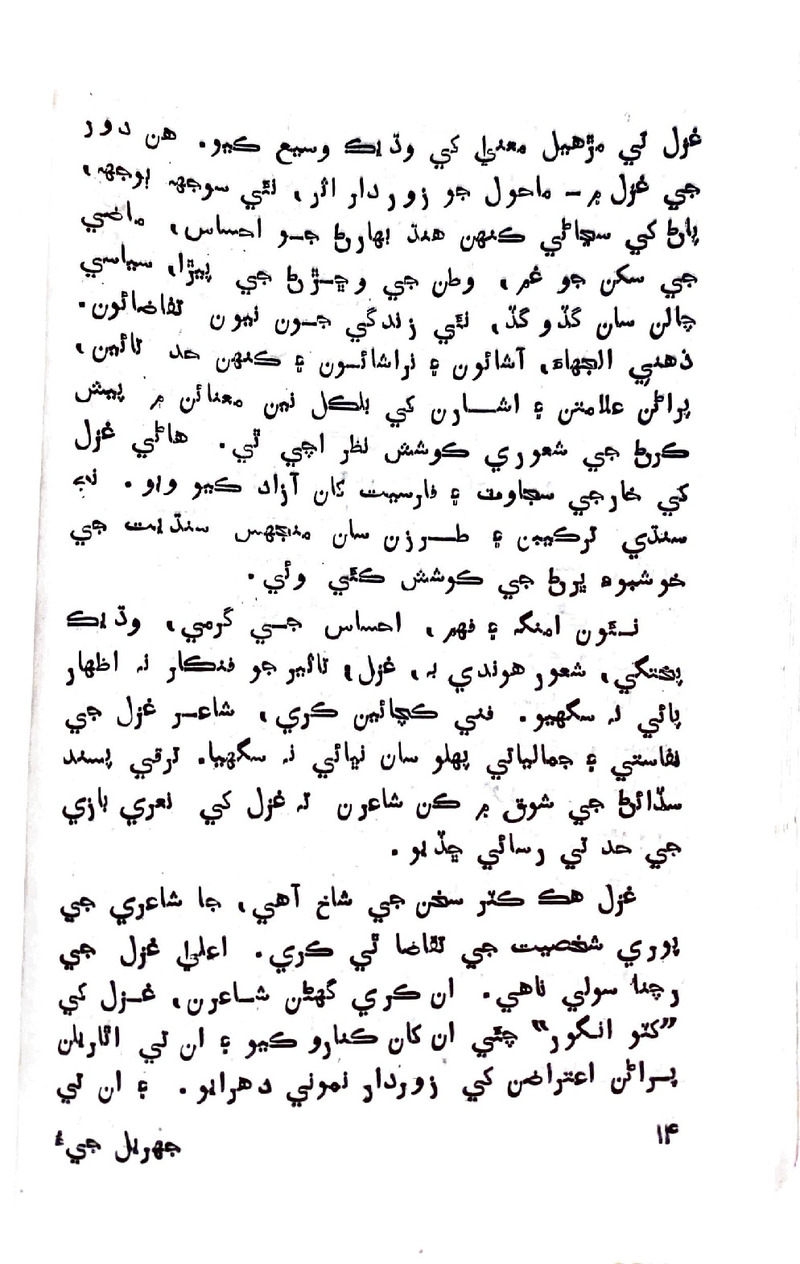 غزل تي مڙهيل معنيٰ کي وڌيڪ وسيع ڪيو. هن دور
جي غزل ۾ - ماحول جو زوردار اثر، نئي سوجهہ ٻوجهہ،
پاڻ کي سڃاڻي ڪنهن هنڌ بيهارڻ جو احساس، ماضي
جي سکن جو غم، وطن جي وڇڙڻ جي پيڙا، سياسي
چالن سان گڏو گڏ، نئي زندگي جون نيون تقاضائون.
ذهني الجهاءَ، آشائون ۽ نراشائون ۽ ڪنهن حد تائين،
پراڻن علامتن ۽ اشارن کي بلڪل نين معنائن ۾ پيش
ڪرڻ جي شعوري ڪوشش نظر اچي ٿي. هاڻي غزل
کي خارجي سجاوٽ ۽ فارسيت کان آزاد ڪيو ويو. نج
سنڌي ترڪيبن ۽ طرزن سان منجهس سنڌيت جي
خوشبوءِ ڀرڻ جي ڪوشش ڪئي وئي.
نئون امنگ ۽ فهم، احساس جي گرمي، وڌيڪ
پختگي، شعور هوندي بہ، غزل، تاثير جو فنڪار نہ اظهار
پائي نہ سگهيو. فني ڪچائين ڪري، شاعر غزل جي
نفاستي ۽ جمالياتي پهلو سان نڀائي نہ سگهيا. ترقي پسند
سڏائڻ جي شوق ۾ ڪن شاعرن تہ غزل کي نعري بازي
جي حد تي رسائي ڇڏيو.
غزل هڪ ڪٽر سخن جي شاخ آهي، جا شاعري جي
پوري شخصيت جي تقاضا ٿي ڪري. اعليٰ غزل جي
رچنا سولي ناهي. ان ڪري گهڻن شاعرن، غزل کي
”کٽو انگور“ چئي ان کان ڪنارو ڪيو ۽ ان تي اٿاريلن
پراڻن اعتراضن کي زوردار نموني دهرايو. ۽ ان تي
۱۴
جهريل جيءُ